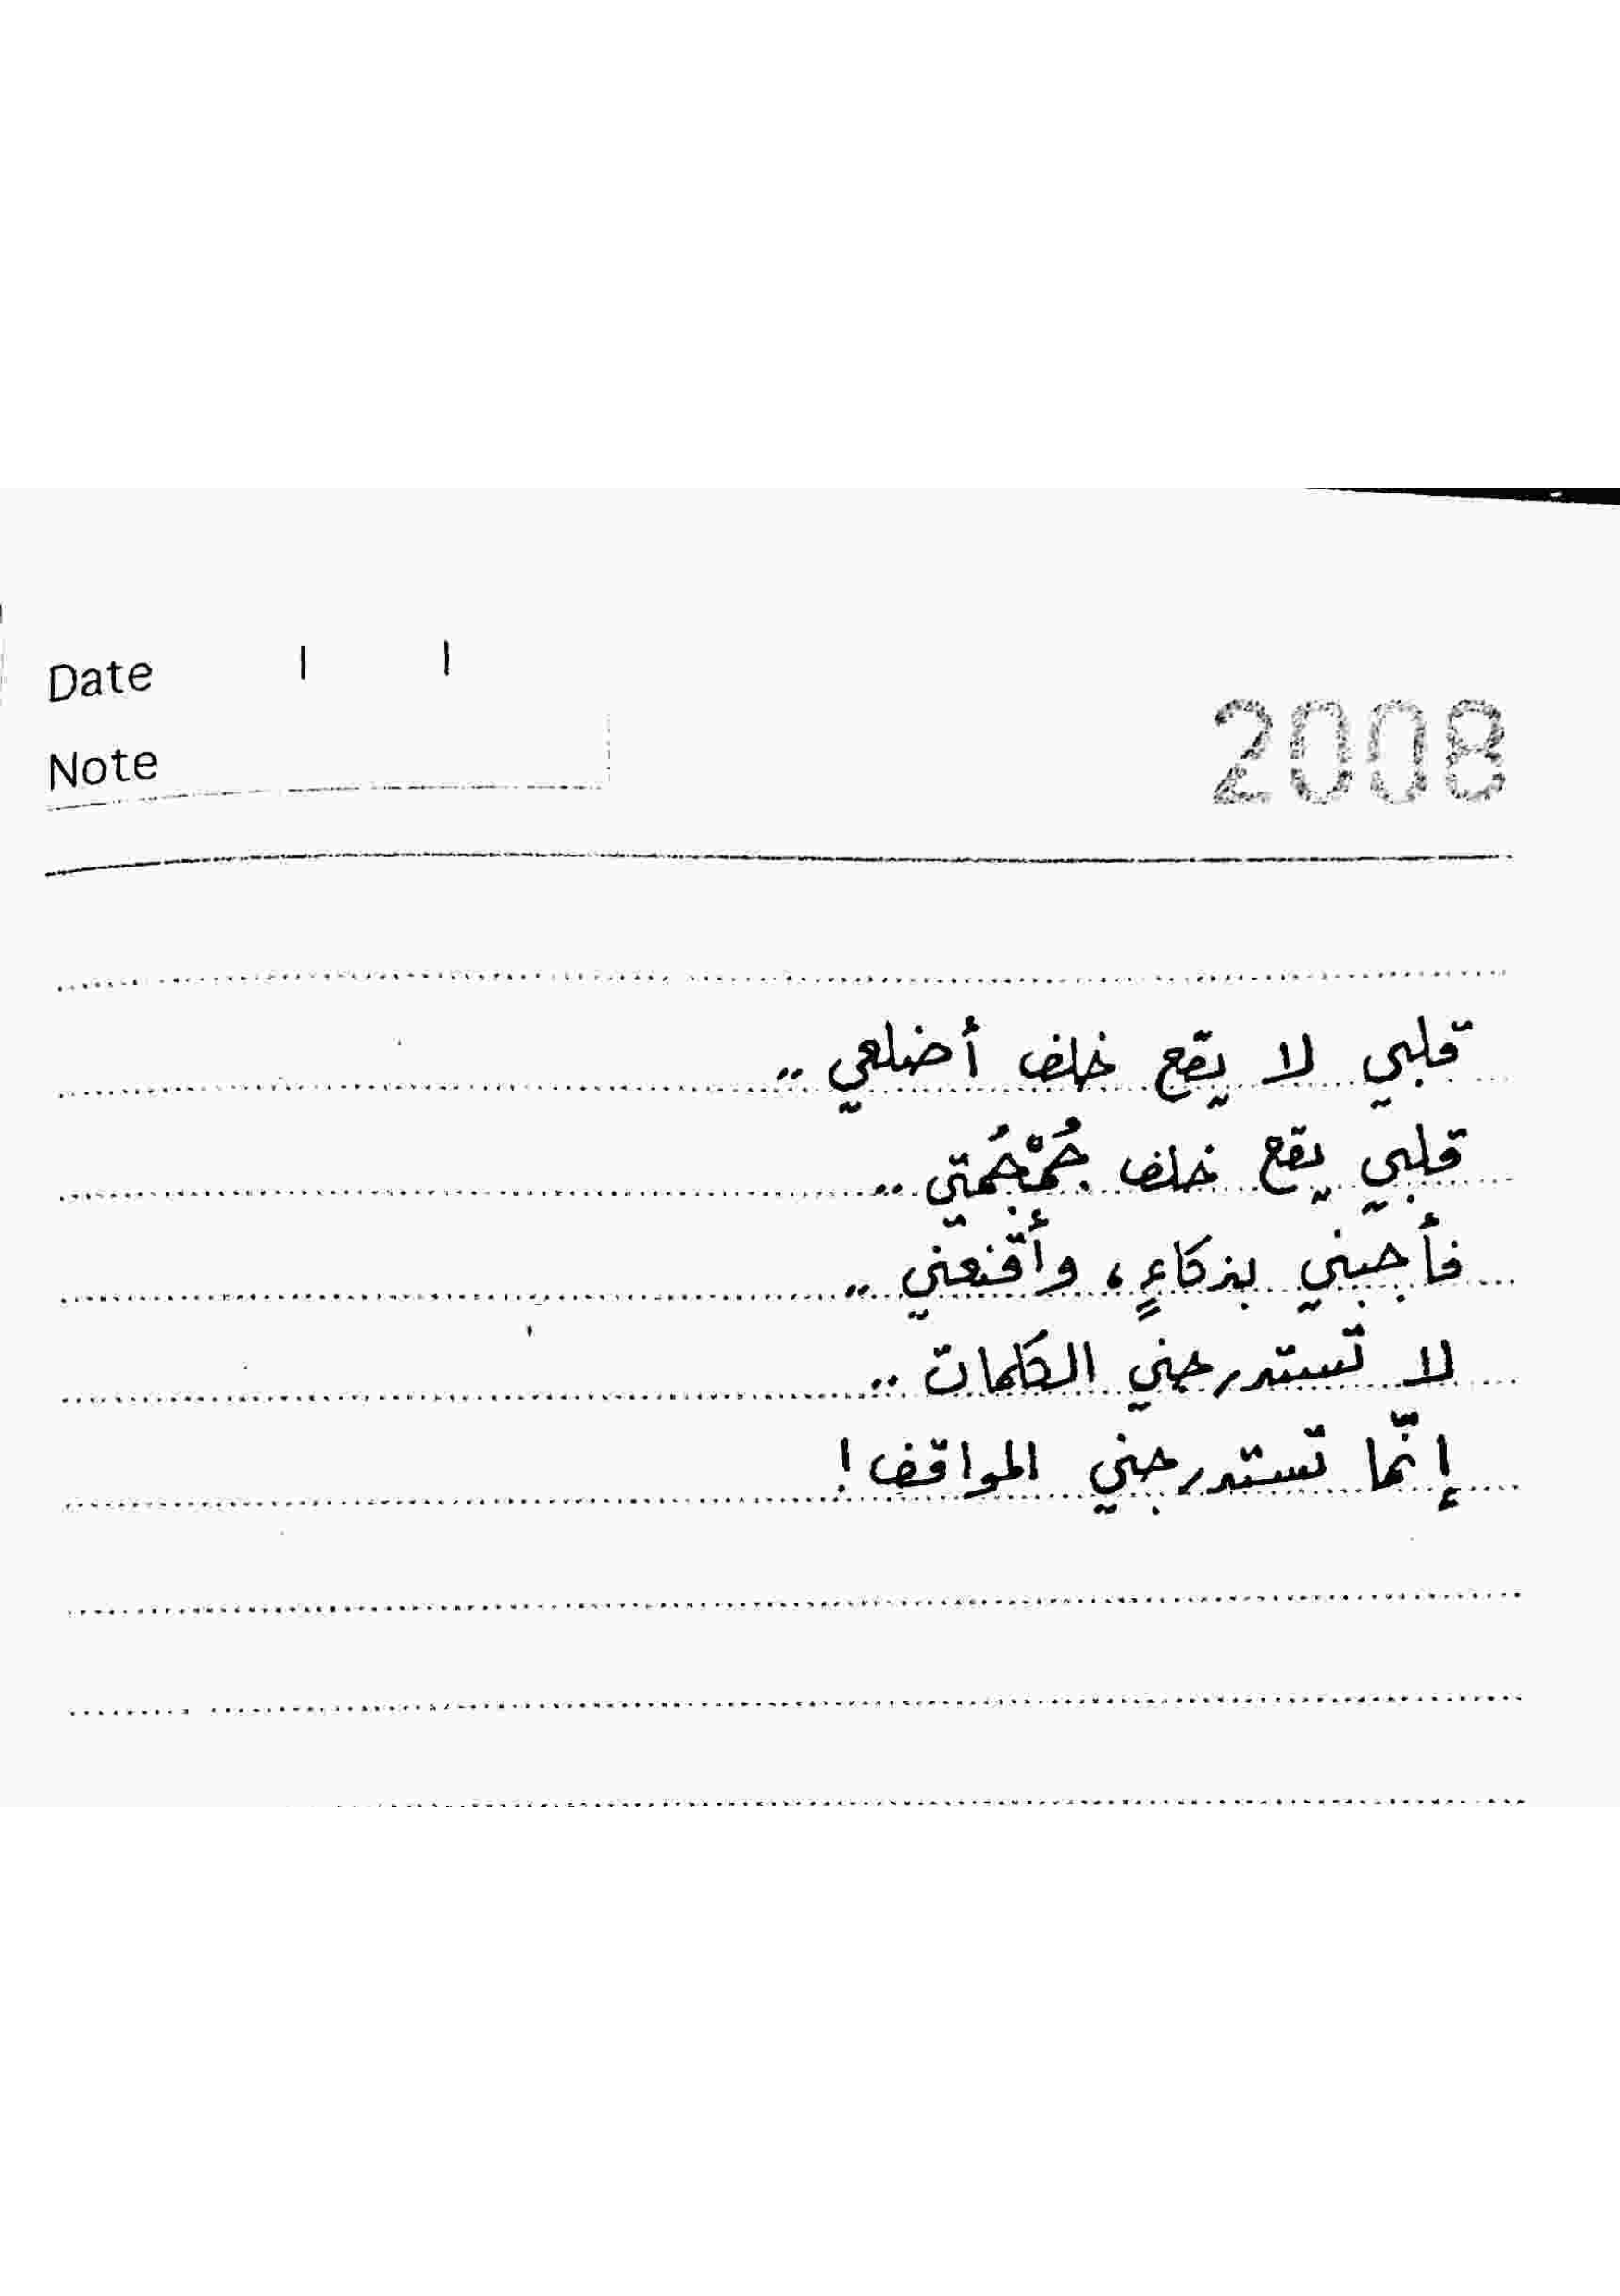 Date / /
2008
Note
قلبي لا يقع خلف أضلعي ..
قلبي يقع خلف جُمْجُمتي ..
فأجبني بذكاءٍ، وأقنعني ..
لا تستدرجني الكلمات ..
إنّما تستدرجني المواقف!